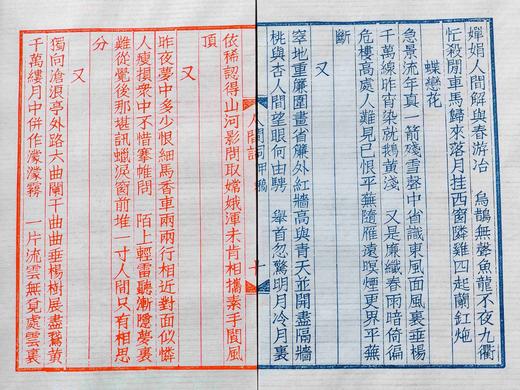 嬋娟人間解與春游冶　烏鵲無聲魚龍不夜九衢
忙殺閒車馬歸來落月挂西窗隣雞四起蘭釭灺
蝶戀花
急景流年真一箭殘雪聲中省識東風面風裏垂楊
千萬線昨宵染就鵝黃淺　又是廉纖春雨暗倚徧
危樓高處人難見已恨平蕪隨雁遠暝煙更界平蕪
斷
又
窣地重簾圍畫省簾外紅牆高與青天並開盡隔牆
桃與杏人間望眼何由騁　舉首忽驚明月冷月裏
人間詞甲稿
十
依稀認得山河影問取嫦娥渾未肯相攜素手閬風
頂
又
昨夜夢中多少恨細馬香車兩兩行相近對面似憐
人瘦損衆中不惜搴帷問　陌上輕雷聽漸隱夢裏
難從覺後那堪訊蠟淚窗前堆一寸人間只有相思
分
又
獨向滄浪亭外路六曲闌干曲曲垂楊樹展盡鵞黃
千萬縷月中併作濛濛霧　一片流雲無覓處雲裏